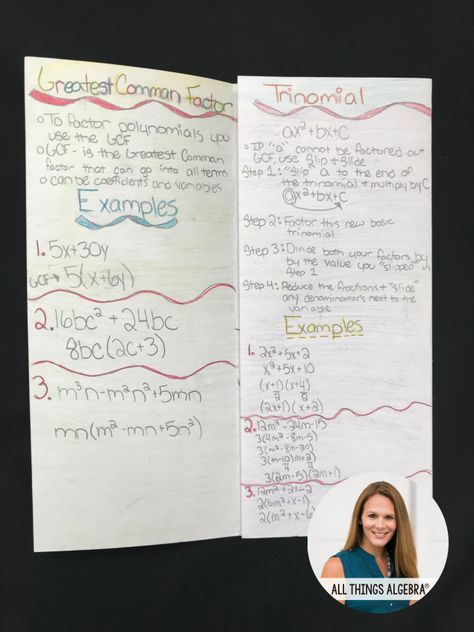 Greatest Comman Factor
o To factor polynomials you
use the GCF
o GCF - is the Greatest Comman
factor that can go into all terms
o can be coefficients and variables
Examples
1. 5x+30y
GCF→ 5(x+6y)
2. 16bc²+24bc
8bc(2c+3)
3. m³n-m²n²+5mn
mn(m²-mn+5n²)
Trinomial
ax²+bx+c
o IF "a" cannot be factored out
GCF, use slip + slide
Step 1: "Slip" a to the end of
the trinomial + multiply by C
ax²+bx+c
Step 2: Factor this new basic
trinomial
Step 3: Divide both your factors by
by the value you "slipped" in
Step 1
Step 4: Reduce the fractions + "slide"
any denominators next to the
variable
Examples
1. 2x²+5x+2
x²+5x+10
(x+1)(x+4)
2 2
(2x+1)(x+2)
2. 12m²-24m-15
3(4m²-8m-5)
3(m²-8m-20)
3(m-10)(m+2)
4 4
3(2m-5)(2m+1)
3. 12m²+2x-2
2(6m²+x-1)
2(m²+x-6)
ALL THINGS ALGEBRA®